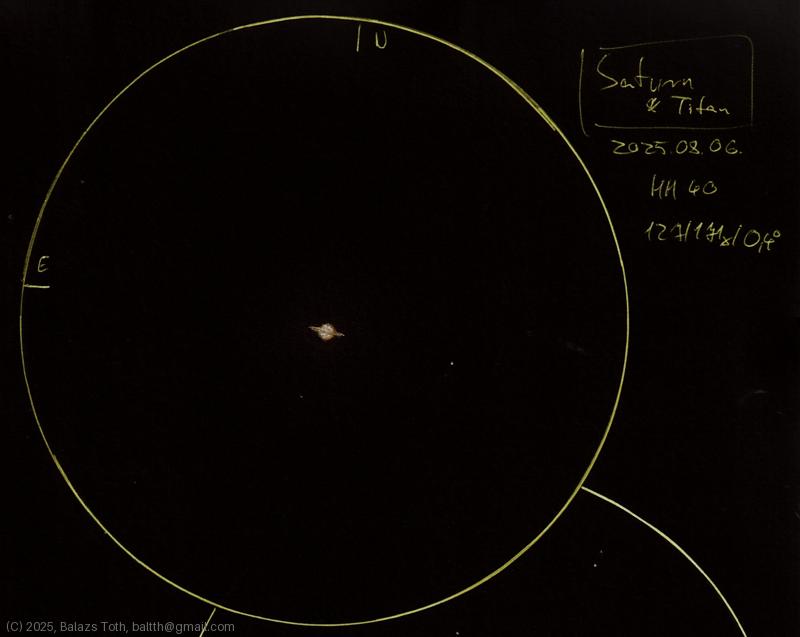 N
Saturn
& Titan
2025.08.06.
HH 40
E
127/171x/0,4°
(C) 2025, Balazs Toth, baltth@gmail.com